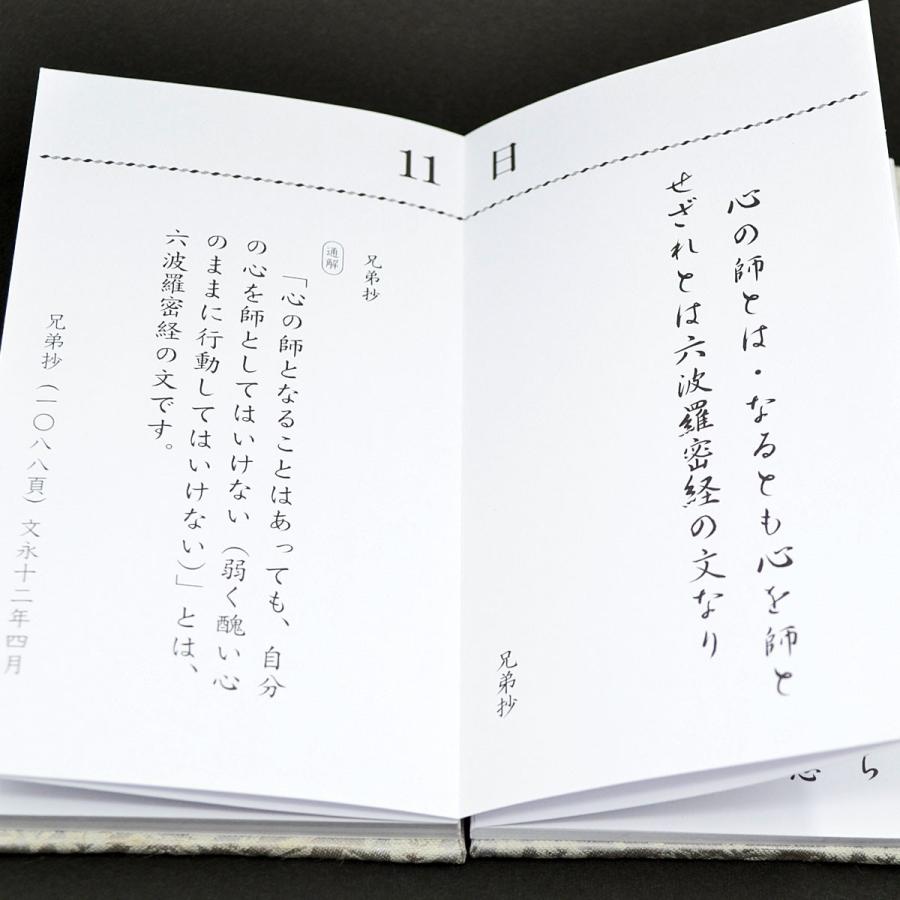 11日
心の師とは・なるとも心を師と
せざれとは六波羅密経の文なり
兄弟抄
兄弟抄
通解
「心の師となることはあっても、自分
の心を師としてはいけない（弱く醜い心
のままに行動してはいけない）」とは、
六波羅密経の文です。
兄弟抄（一〇八八頁）文永十二年四月
ら
心